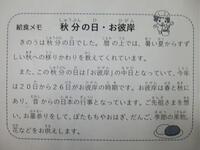 給食メモ 秋分の日・お彼岸
きのうは秋分の日でした。暦の上では、暑い夏からすず
しい秋への移りかわりを教えてくれています。
また、この秋分の日は「お彼岸」の中日となっていて、今年
は20日から26日がお彼岸の時期です。お彼岸は春と秋に
あり、昔からの日本の行事となっています。ご先祖さまを想
い、お墓参りをして、ぼたもちやおはぎ、だんご、季節の果物、
花などをお供えします。